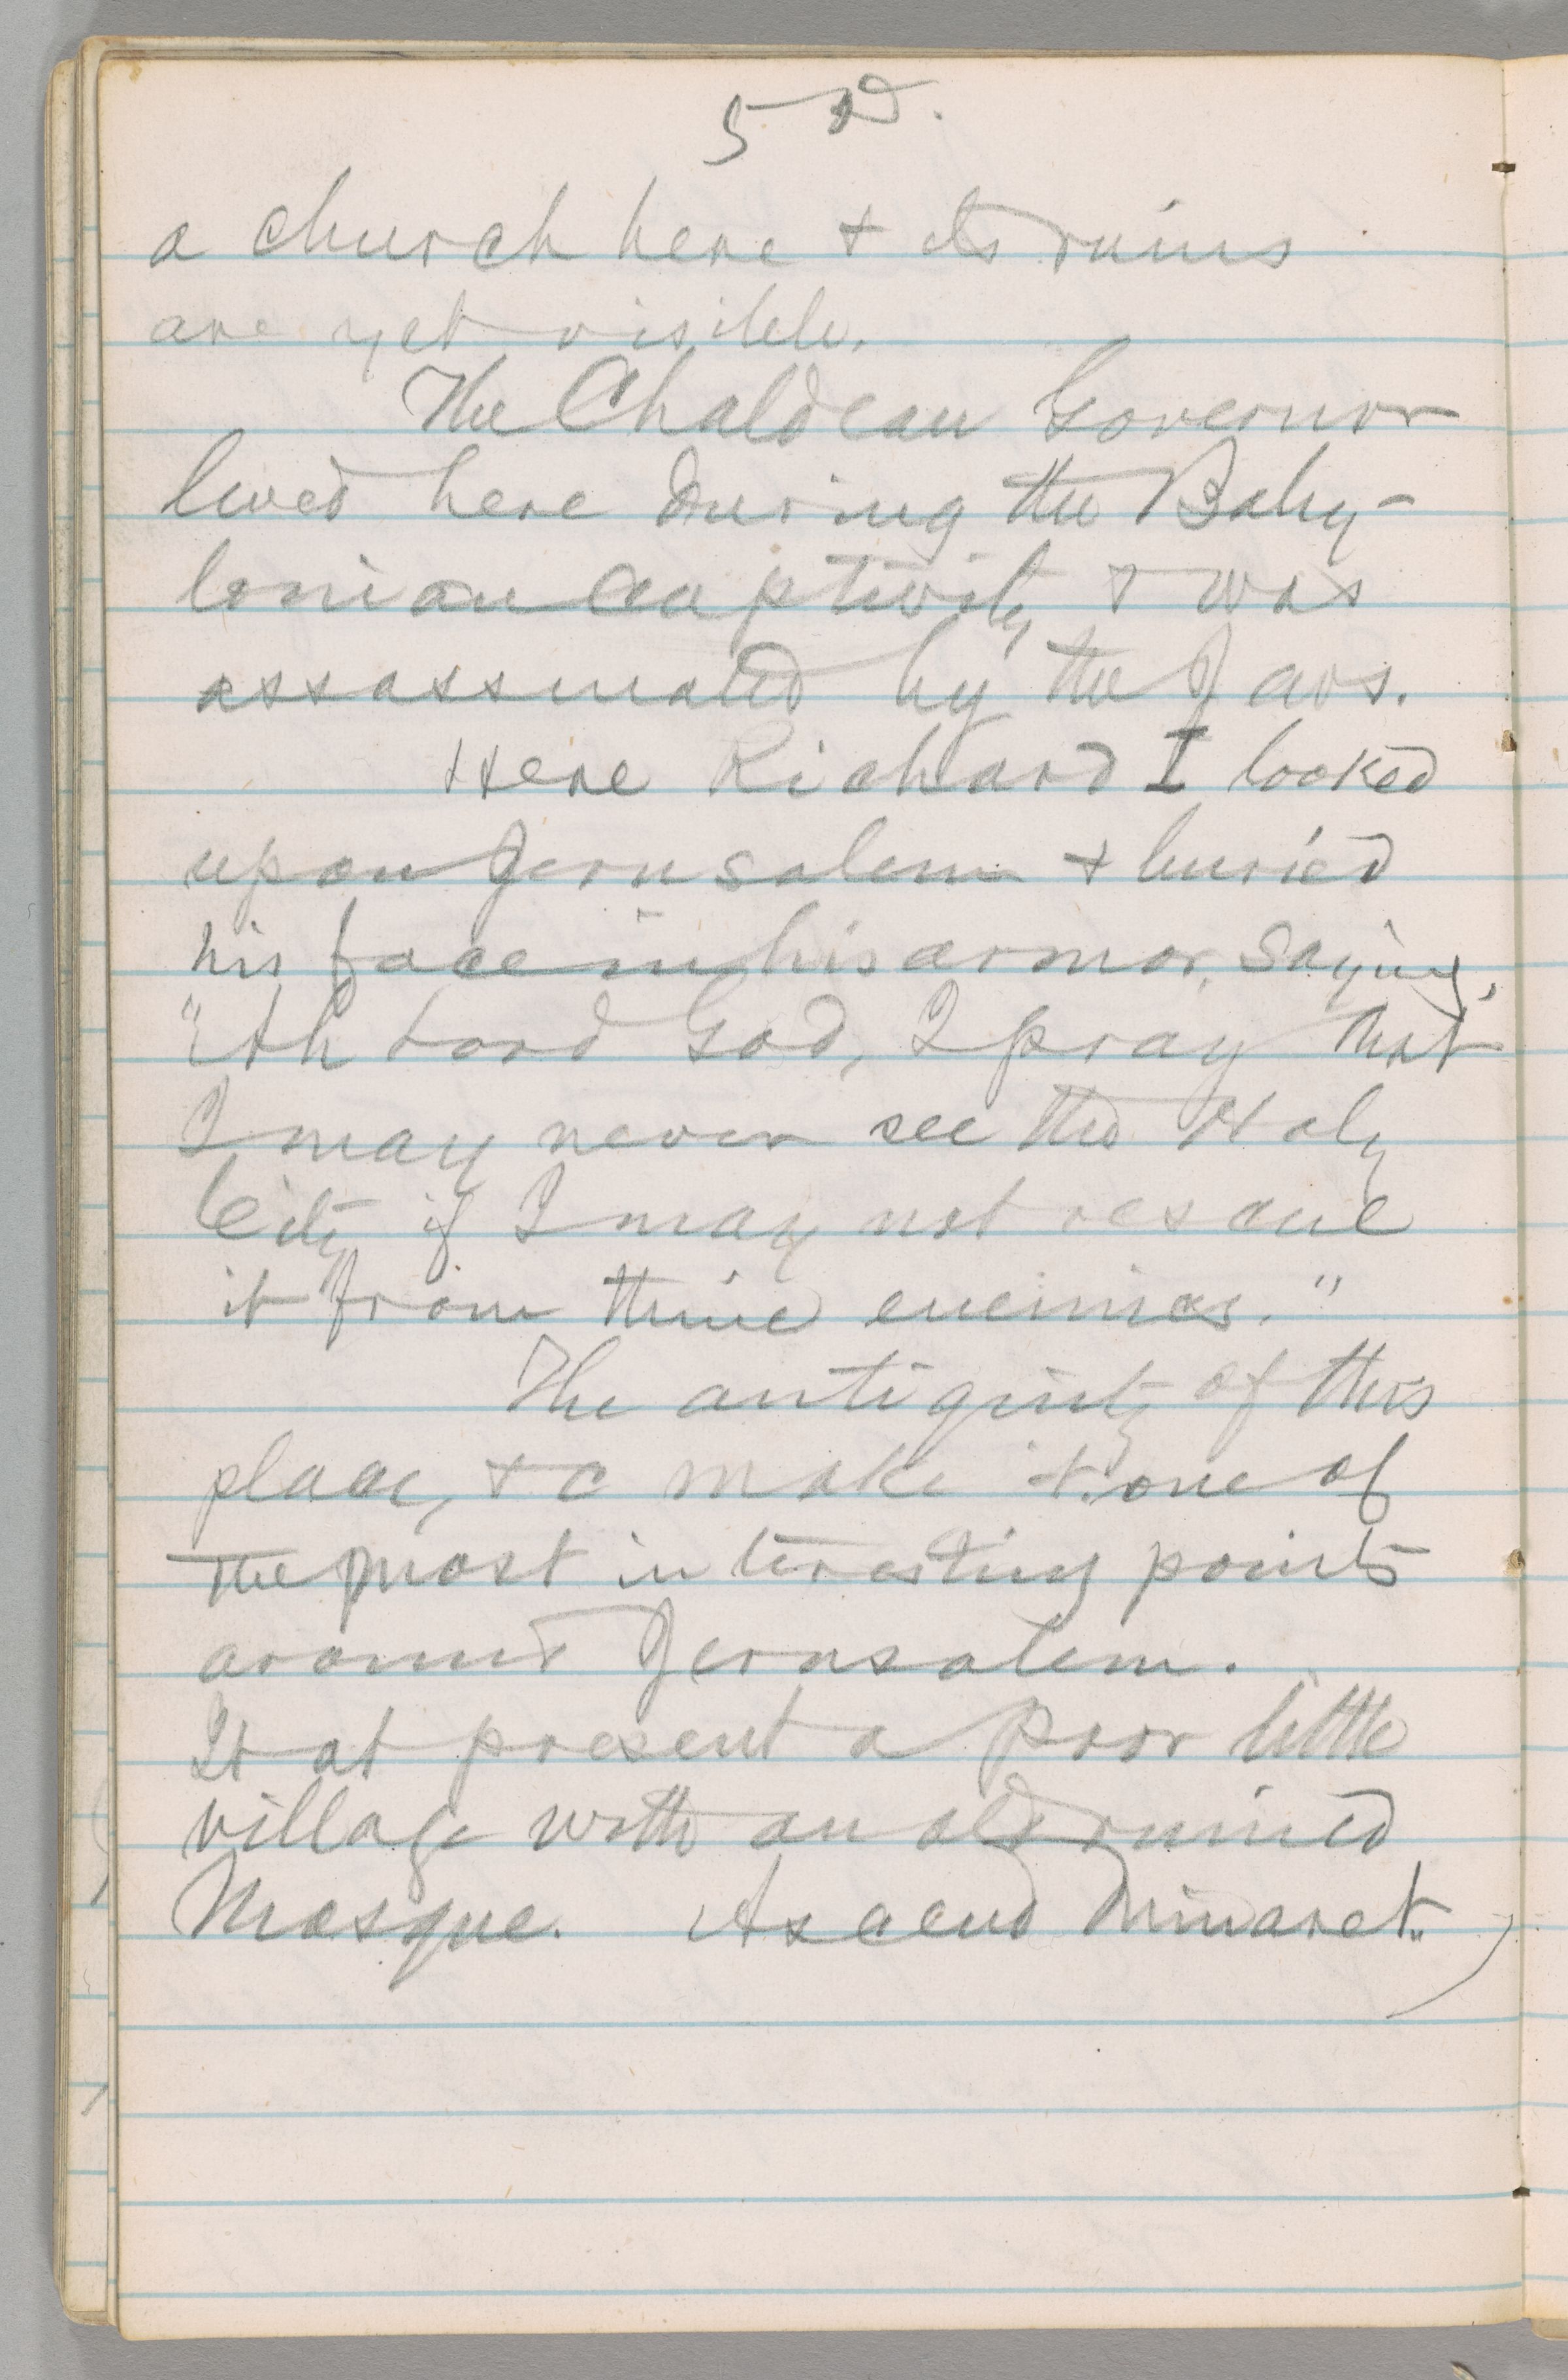 5 D.
a church here & its ruins
are yet visible.
The Chaldean Governor
lived here during the Baby-
lonian Captivity & was
assassinated by the Jews.
Here Richard I looked
upon Jerusalem & buried
his face in his armor, saying,
"Ah Lord God, I pray that
I may never see the Holy
City if I may not rescue
it from thine enemies."
The antiquity of this
place, &c make it one of
the most interesting points
around Jerusalem.
It at present a poor little
village with an old ruined
Mosque. Ascend Minaret.